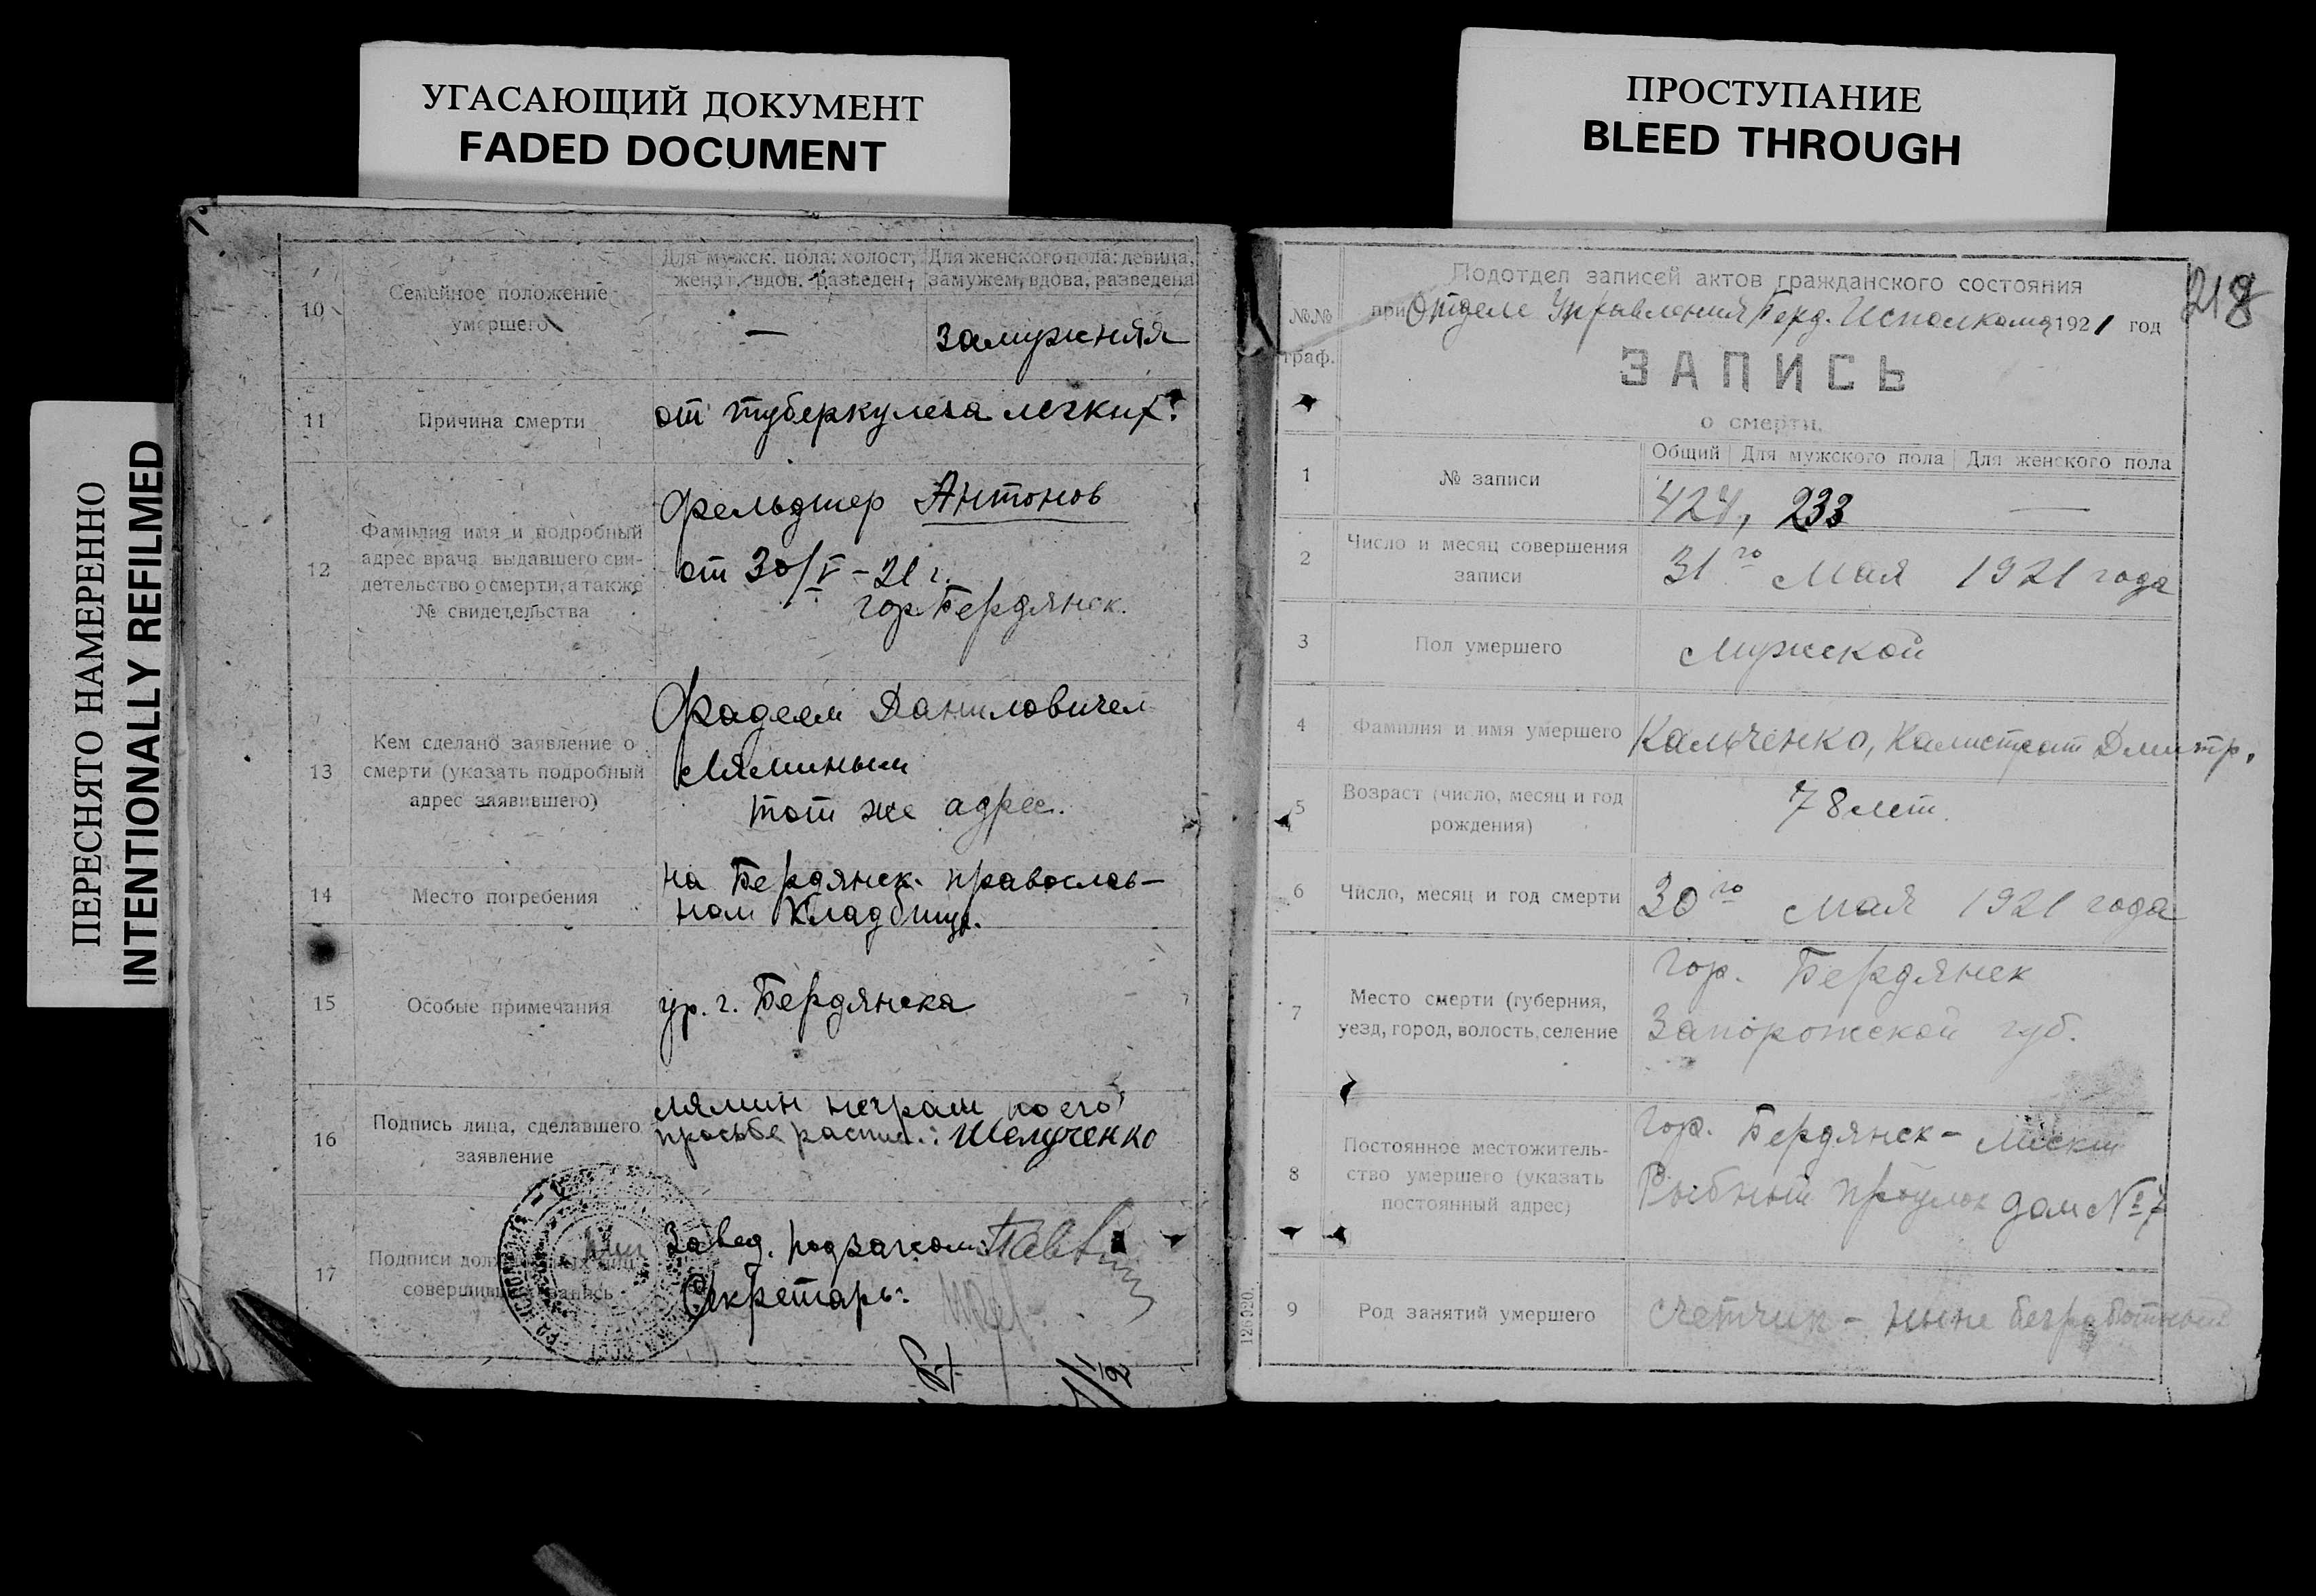 УГАСАЮЩИЙ ДОКУМЕНТ
FADED DOCUMENT
ПРОСТУПАНИЕ
BLEED THROUGH
ПЕРЕСНЯТО НАМЕРЕННО
INTENTIONALLY REFILMED
10
Семейное положение
умершего
Для мужск. пола: холост,
женат, вдов, разведен,
Для женского пола: девица,
замужем, вдова, разведена
—
замужняя
11
Причина смерти
от туберкулеза легких.
12
Фамилия имя и подробный
адрес врача выдавшего сви-
детельство о смерти, а также
№ свидетельства
Фельдшер Антонов
от 30/V – 21 г.
гор Бердянск.
13
Кем сделано заявление о
смерти (указать подробный
адрес заявившего)
Фадеем Даниловичем
Ляминым
тот же адрес.
14
Место погребения
на Бердянск. православ–
ном кладбище.
15
Особые примечания
ур. г. Бердянска
16
Подпись лица, сделавшего
заявление
Лямин неграм по его
просьбе распис.: Шелученко
17
Подписи
совершивш запись
Завед. подзагсом:
Секретарь:
218
№№
граф.
Подотдел записей актов гражданского состояния
при Отделе Управления Берд. Исполкома 1921 год
ЗАПИСЬ
о смерти.
1
№ записи
Общий
Для мужского пола
Для женского пола
424, 233 —
2
Число и месяц совершения
записи
31го Мая 1921 года
3
Пол умершего
Мужской
4
Фамилия и имя умершего
Кальченко, Калистрат Дмитр.
5
Возраст (число, месяц и год
рождения)
78 лет.
6
Число, месяц и год смерти
30го Мая 1921 года
7
Место смерти (губерния,
уезд, город, волость, селение
гор. Бердянск
Запорожской губ.
8
Постоянное местожитель-
ство умершего (указать
постоянный адрес)
гор. Бердянск – Лиски
Рыбный проулок дом № 7
9
Род занятий умершего
счетчик – ныне безработный
126520.